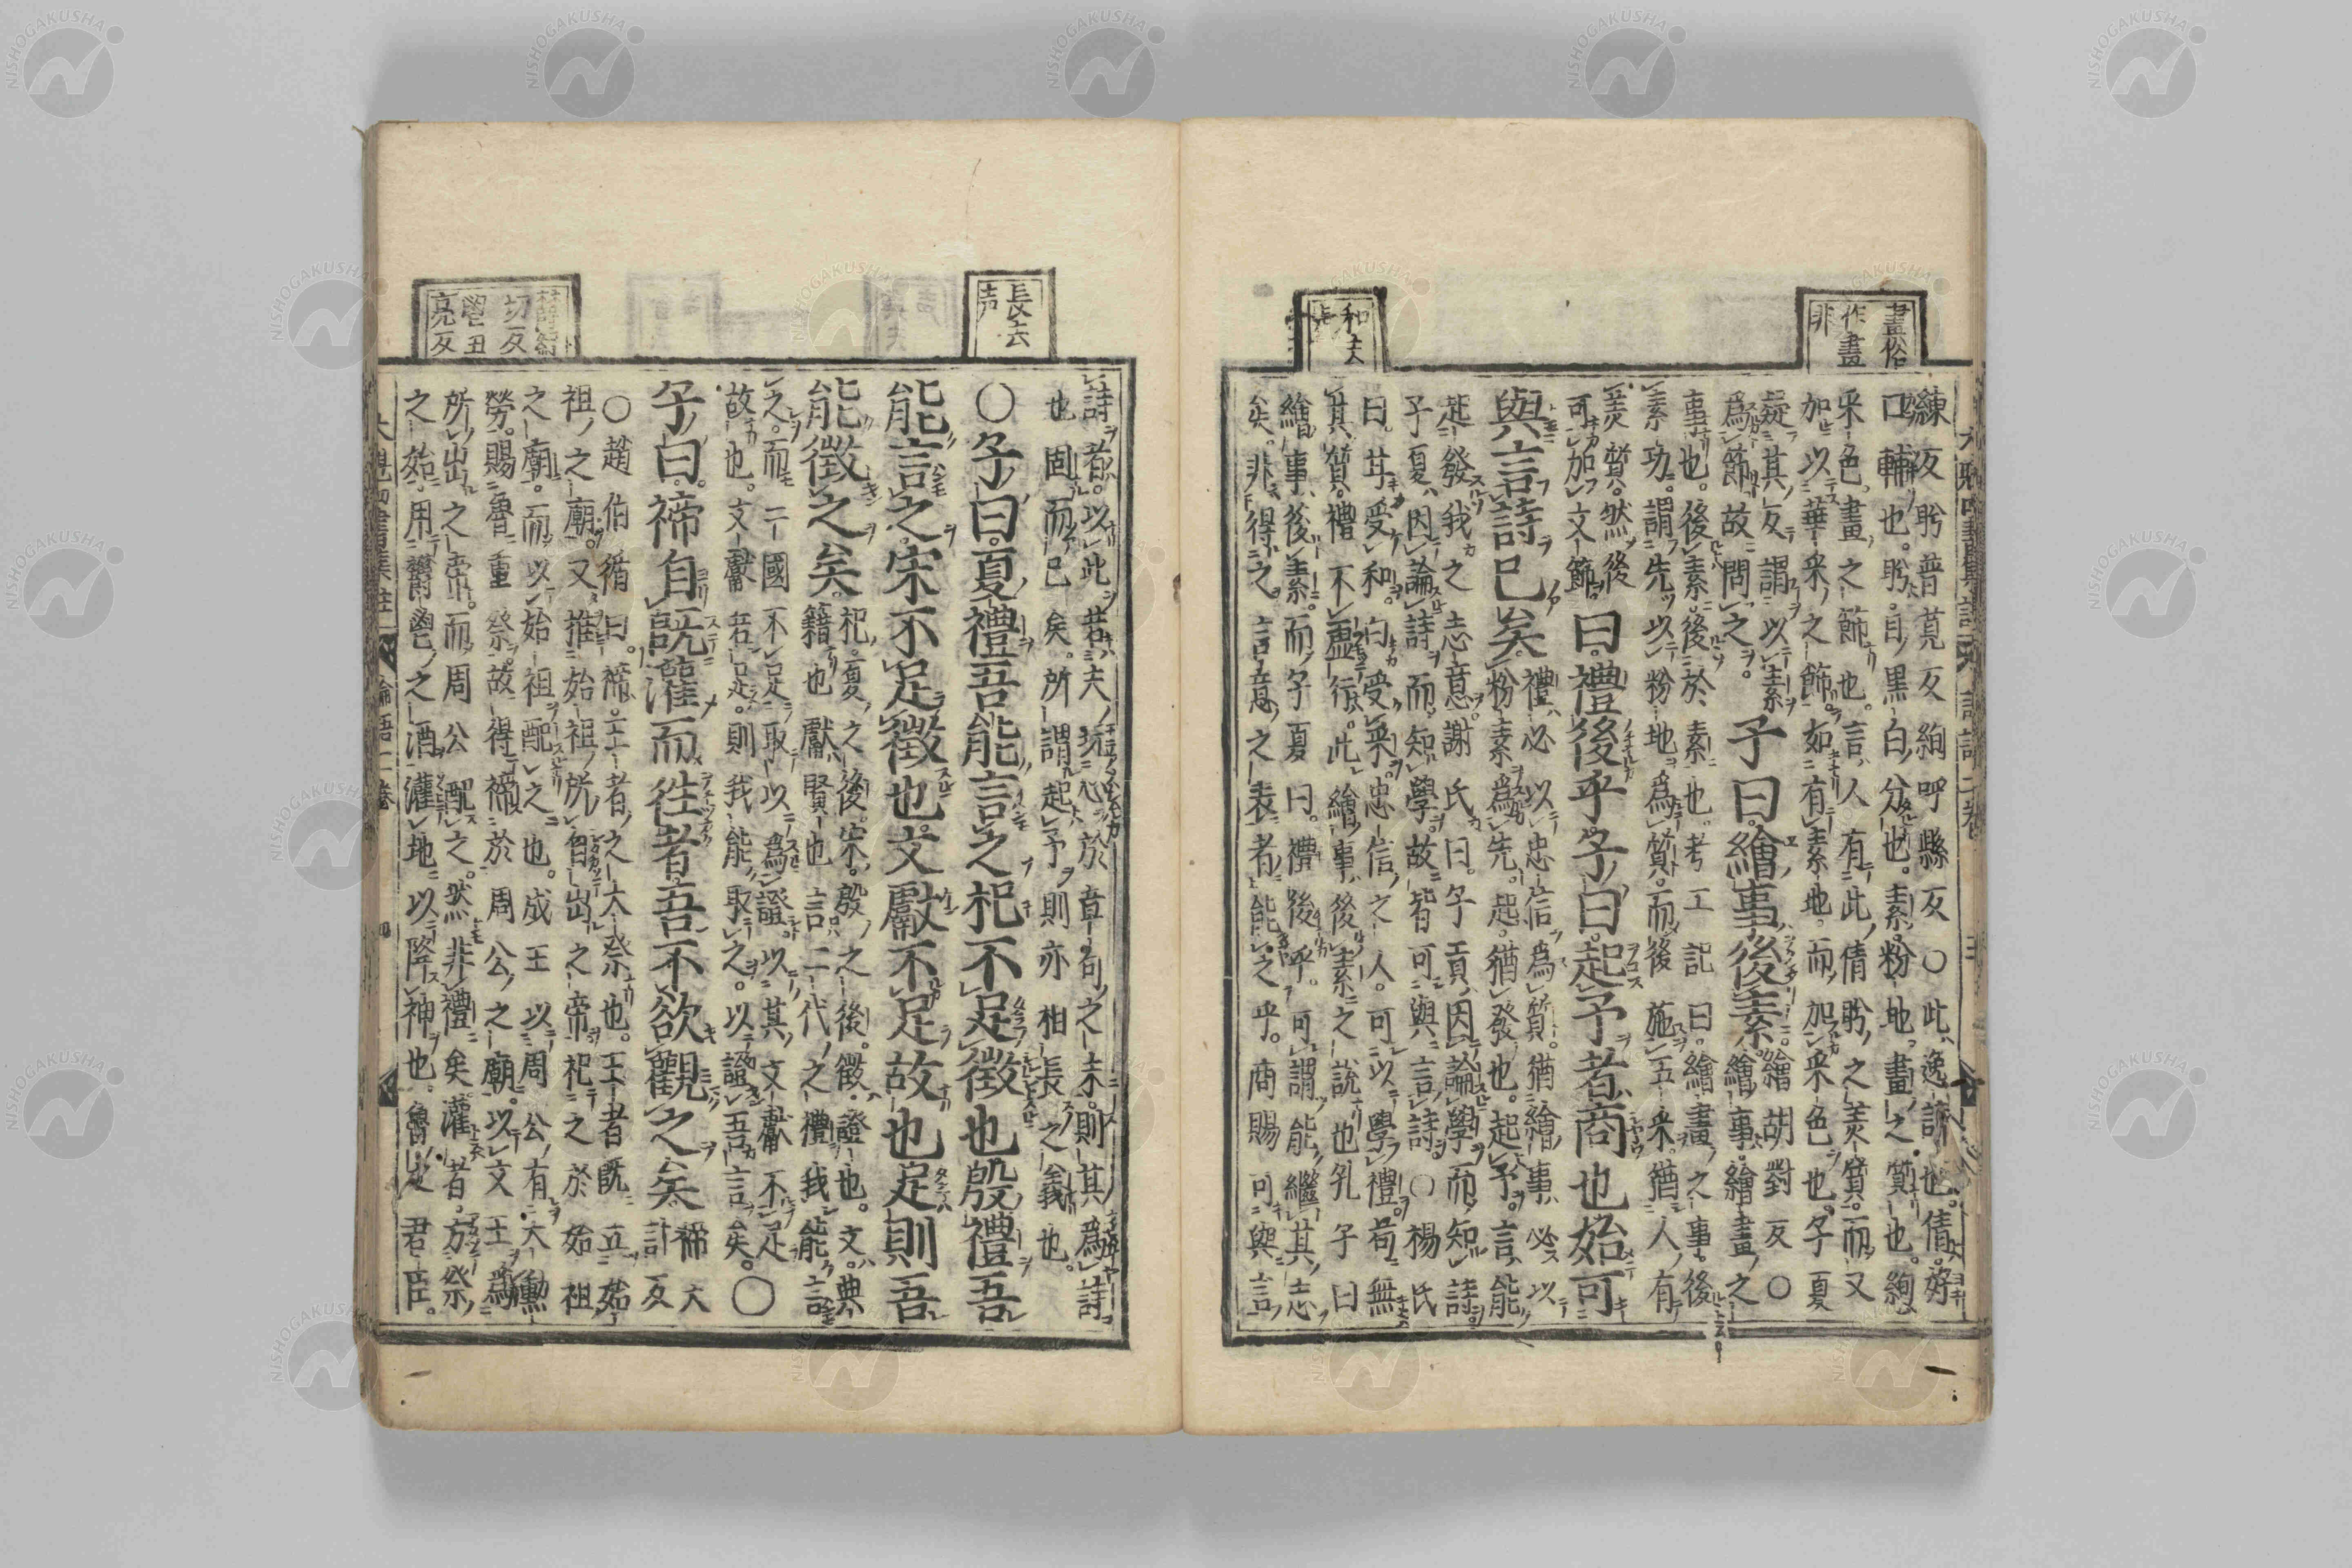 畫俗
作畫
非
練反盼普莧反絢呼縣反○此逸詩也。倩好
口輔也。盼目黑白分也。素粉地。畫之質也。絢
采色。畫之飾也。言人有此倩盼之美質。而又
加以華采之飾。如有素地。而加采色也。子夏
疑其反謂以素
為飾。故問之。
子曰。繪事後素。
繪胡對反○
繪事。繪畫之
事也。後素。後於素也。考工記曰繪畫之事。後
素功。謂先以粉地為質。而後施五采。猶人有
美質。然後
可加文飾。
曰。禮後乎。子曰。起予者商也始可
與言詩已矣。
禮必以忠信為質。猶繪事必以
粉素為先。起猶發也。起予。言能
起發我之志意。謝氏曰。子貢因論學而知詩。
子夏因論詩而知學。故皆可與言詩。○楊氏
曰。甘受和。白受采。忠信之人。可以學禮。苟無
其質。禮不虛行。此繪事後素之說也。孔子曰
繪事後素。而子夏曰。禮後乎。可謂能繼其志
矣。非得之言意之表者能之乎。商賜可與言
和去
長去
声
詩者。以此。若夫玩心於章句之末。則其為詩
也固而已矣。所謂起予則亦相長之義也。
○子曰。夏禮吾能言之杞不足徵也殷禮吾
能言之。宋不足徵也。文獻不足故也足則吾
能徵之矣。
杞。夏之後。宋。殷之後。徵證也。文。典
籍也獻賢也言二代之禮我能言
之。而二國不足取以為證。以其文獻不足
故也。文獻若足。則我能取之。以證吾言矣。○
子曰。禘自既灌而往者吾不欲觀之矣
禘大
計反
○趙伯循曰。禘。王者之大祭也。王者既立始
祖之廟。又推始祖所自出之帝。祀之於始祖
之廟。而以始祖配之也。成王以周公有大勳
勞。賜魯重祭。故得禘於周公之廟。以文王為
所出之帝。而周公配之。然非禮矣。灌者。方祭
之始。用鬱鬯之酒灌地。以降神也。魯之君臣。
鬯丑
亮反